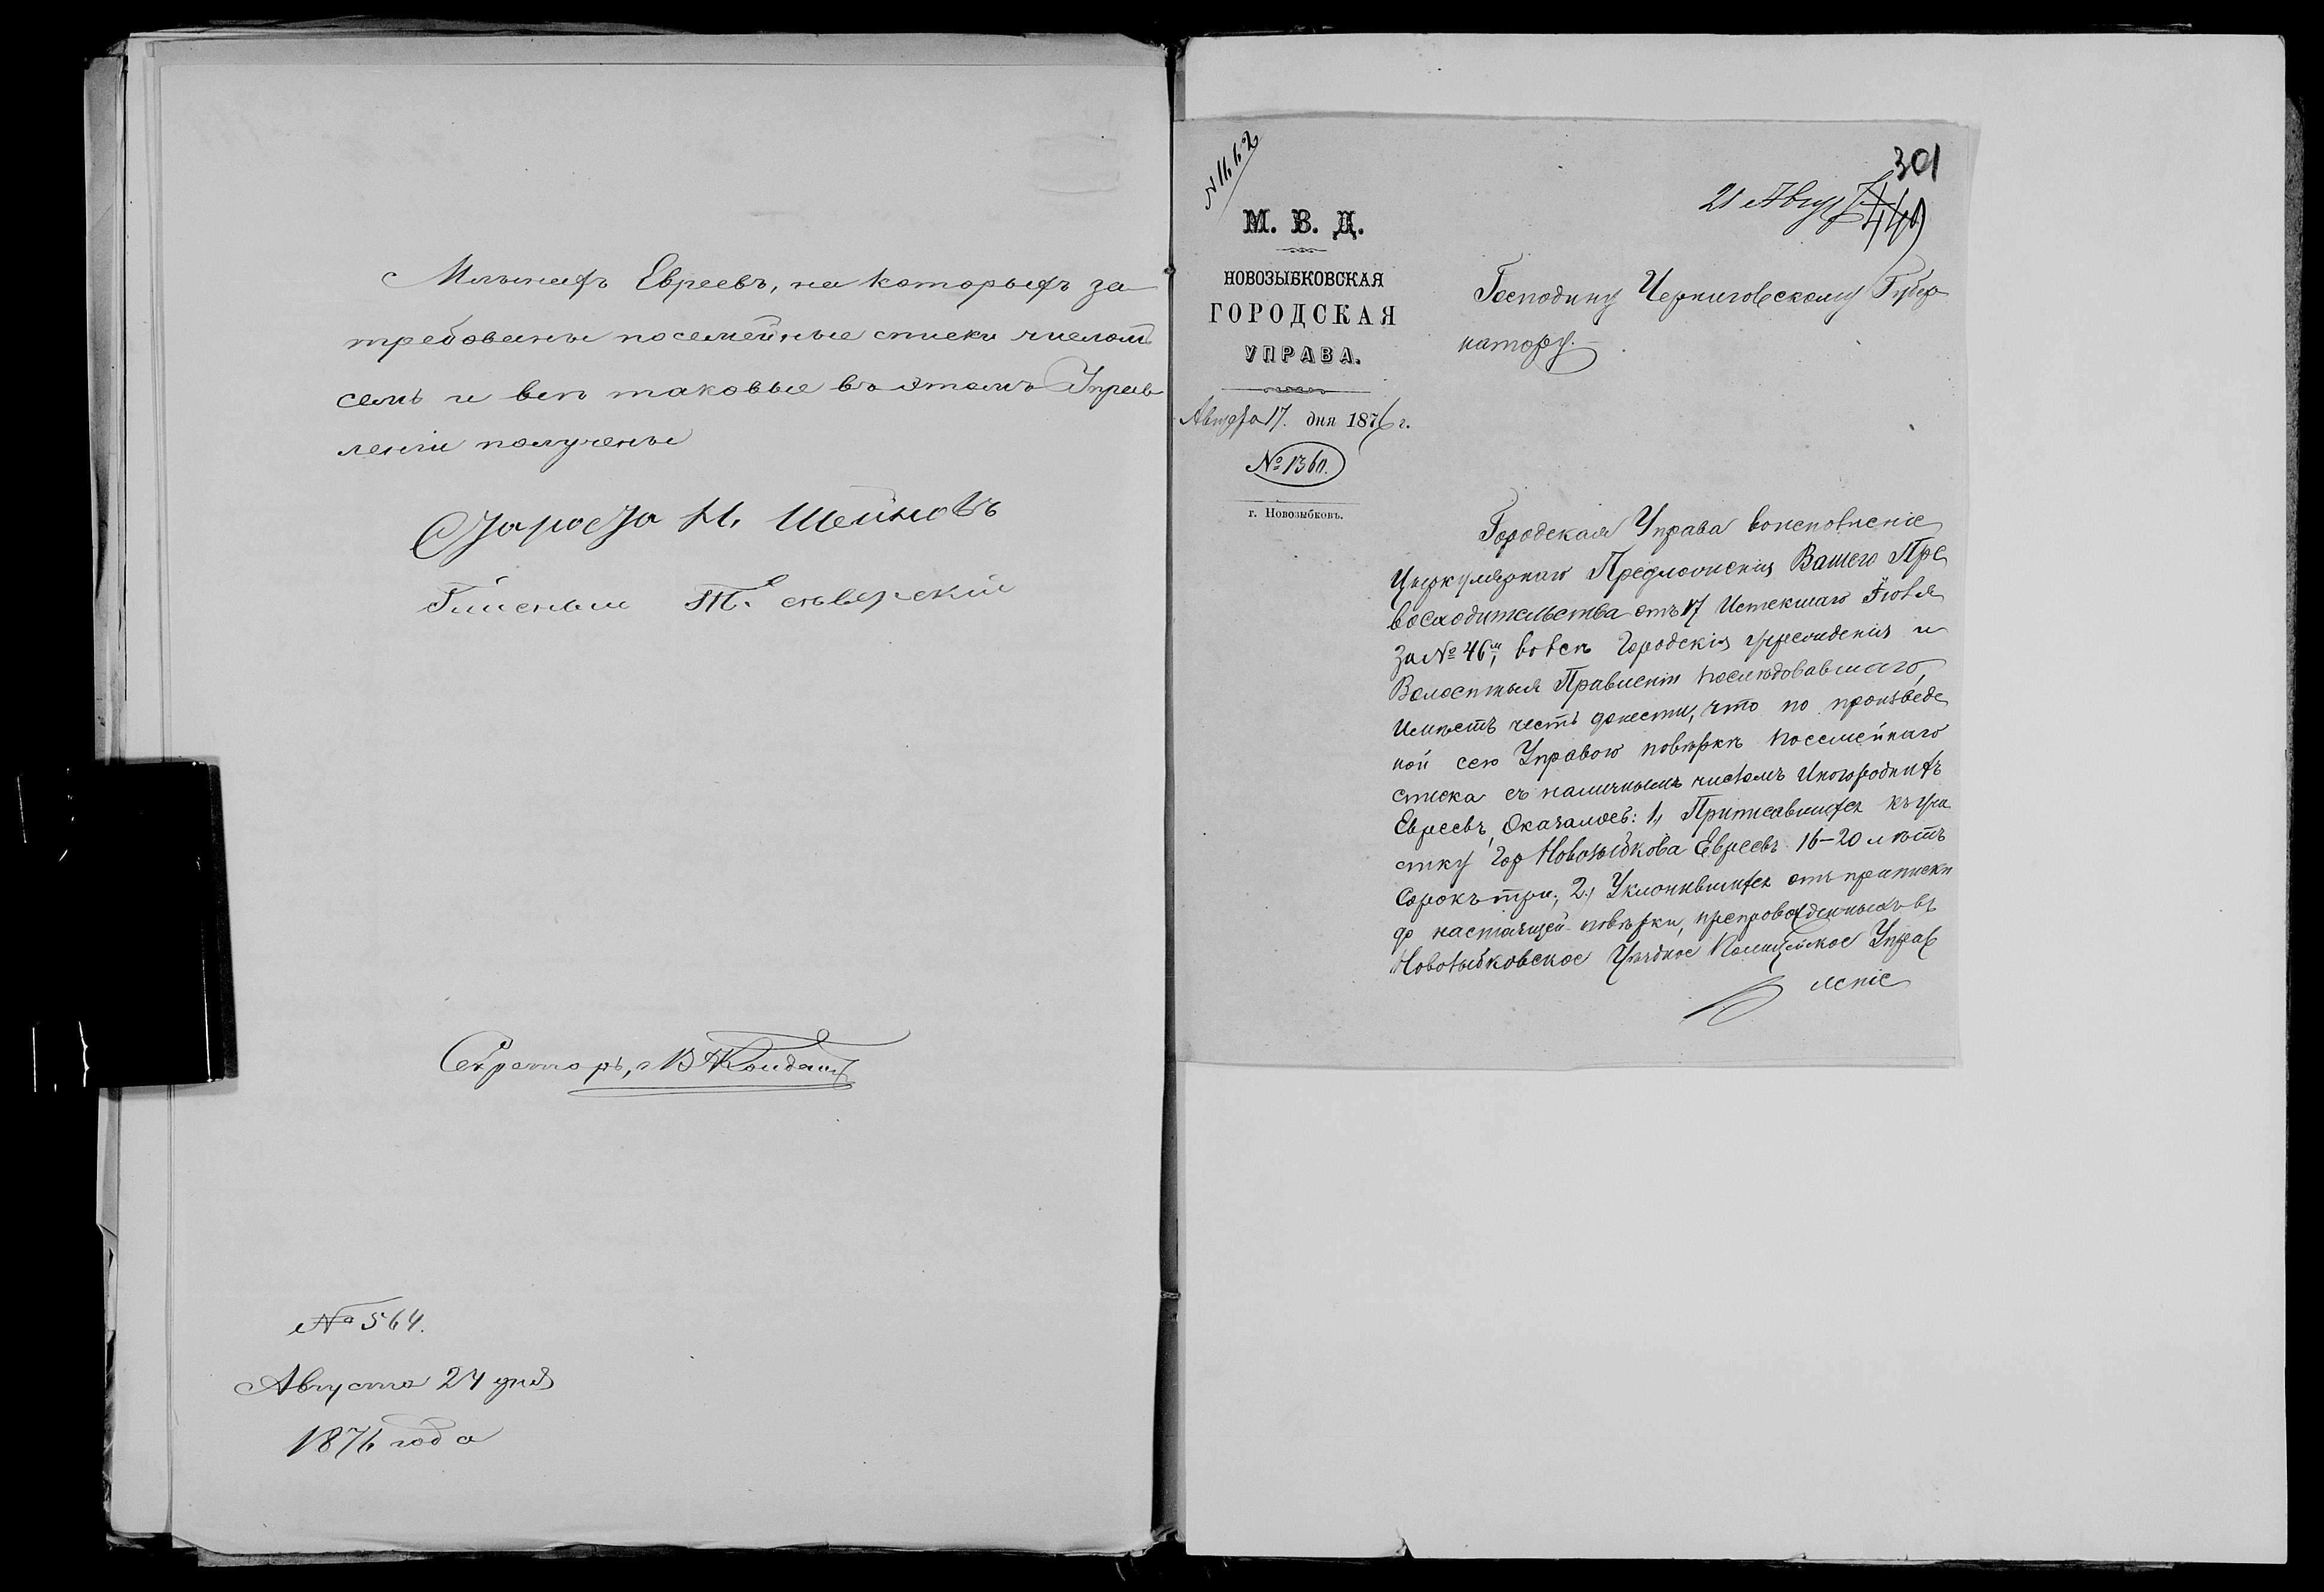 Евреевъ, на которыхъ за
требованы посемейные списки числомъ
семь и всѣ таковые въ этомъ Управ
леніи получены
Староста Н. Шейновъ
Т. Сѣверскій
Секретарь,
№ 564.
Августа 24 дня
1876 года
№ 1162
301
21 Авгус
449
М. В. Д.
НОВОЗЫБКОВСКАЯ
ГОРОДСКАЯ
УПРАВА.
Августа 17. дня 1876 г.
№ 1360.
г. Новозыбковъ.
Господину Черниговскому Губер
натору.
Городская Управа воисполненіе
Циркулярнаго Предложенія Вашего Пре
восходительства отъ 17 Истекшаго Іюля
за № 46м, вовсѣ Городскія учрежденія и
Волостныя Правленія послѣдовавшаго,
Имѣетъ честь донести, что по произведе
ной сею Управою повѣркѣ посемейнаго
списка съ наличнымъ числомъ Иногороднихъ
Евреевъ, Оказалось: 1, Приписавшихся къ уча
стку Гор Новозыбкова Евреевъ 16-20 лѣтъ
Сорокъ три; 2, Уклонившихся отъ приписки
до настоящей повѣрки, препровожденныхъ въ
Новозыбковское Уѣздное Полицейское Управ
леніе